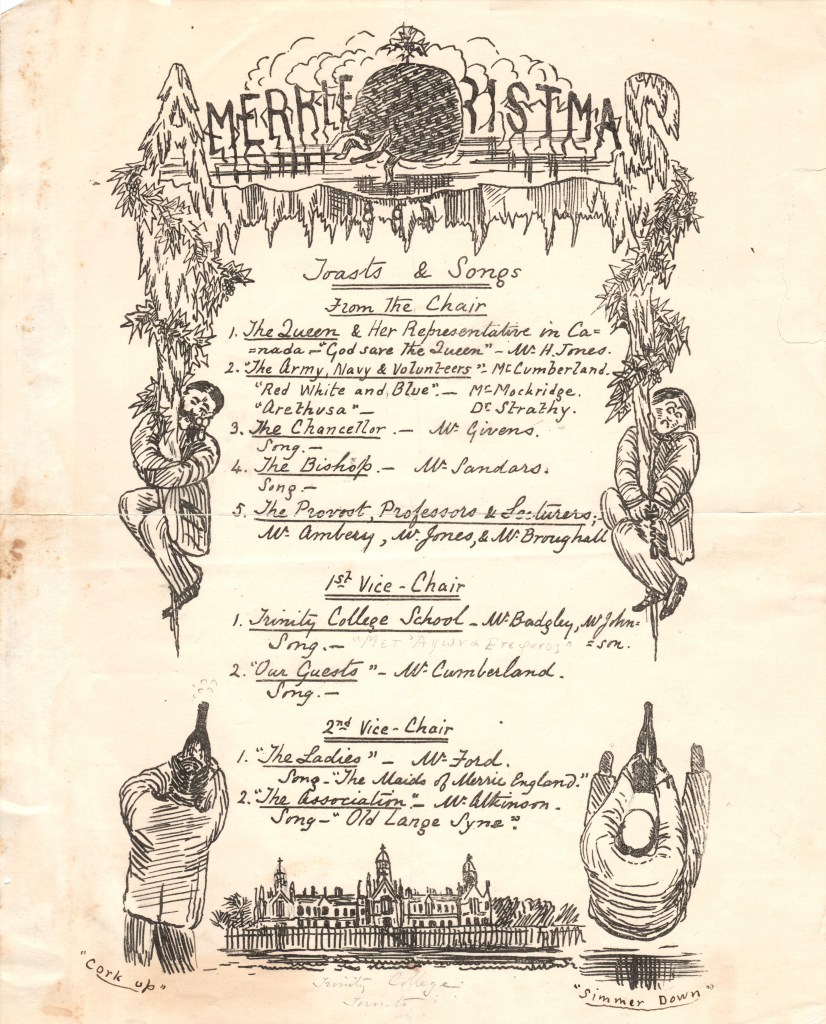 A MERRIE RISTMAS
1885
Toasts & Songs
From the Chair
1. The Queen & Her Representative in Ca=
=nada — "God save the Queen" — Mr. H. Jones.
2. "The Army, Navy & Volunteers" — Mr Cumberland.
"Red White and Blue". — Mr Mockridge.
"Arethusa" — Dr Strathy.
3. The Chancellor. — Mr Givens.
Song. —
4. The Bishop. — Mr Sandars.
Song. —
5. The Provost, Professors & Lecturers;
Mr. Ambery, Mr Jones, & Mr Broughall
1st Vice-Chair
1. Trinity College School — Mr Badgley, Mr John=
Song. — =son.
2. "Our Guests" — Mr Cumberland.
Song. —
2nd Vice-Chair
1. "The Ladies" — Mr Ford.
Song - "The Maids of Merrie England."
2. "The Association" — Mr Atkinson.
Song - "Old Lange Syne".
"Cork up"
"Simmer Down"
Trinity College
Toronto